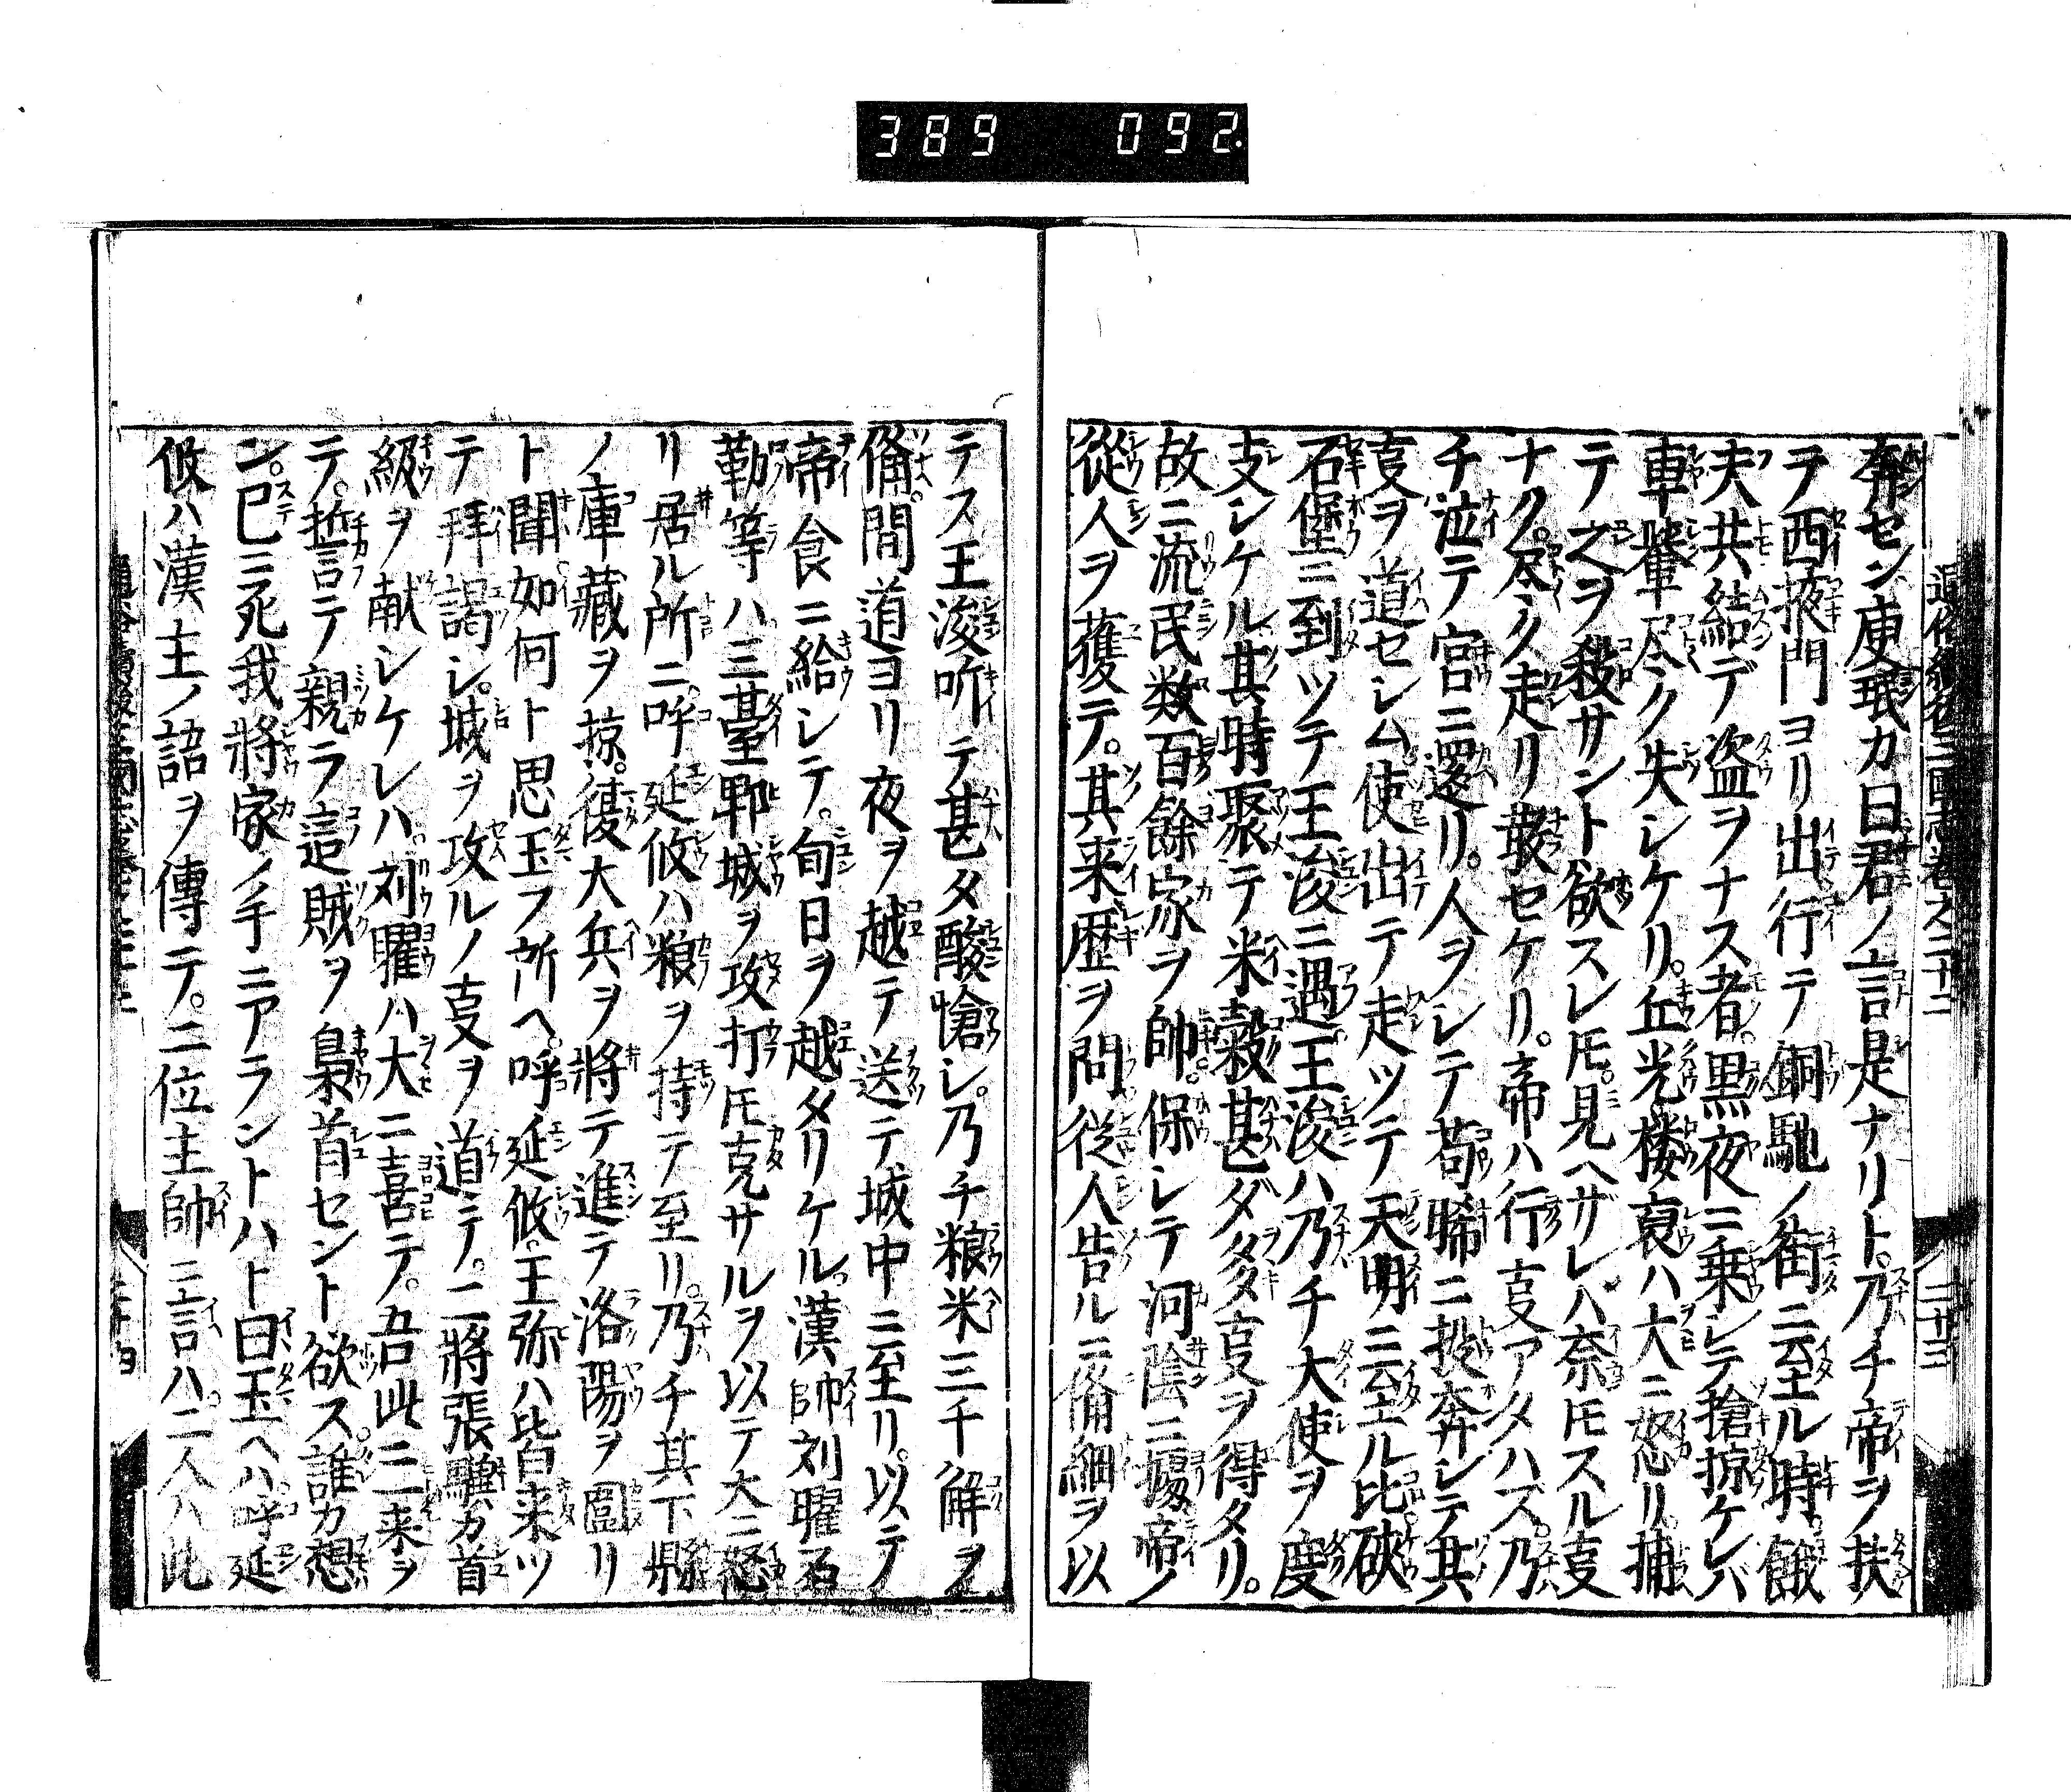 389 092.
奔セン庾珉カ曰君ノ言是ナリト。乃チ帝ヲ扶
ヲ西掖門ヨリ出行テ銅駞ノ街ニ至ル時。餓
夫共結デ盗ヲナス者。黒夜ニ乗レテ搶掠ケレバ
車輦尽ク失シケリ。丘光楼裒ハ大ニ怒リ。捕
テ之ヲ殺サント欲スレ𪜈。見ヘザレバ奈𪜈スル㕝
ナク。尽ク走リ散セケリ。帝ハ行㕝アタハズ。乃
チ泣テ宮ニ還リ。人ヲシテ苟晞ニ投奔レテ其
㕝ヲ道セシム。使出テ走ツテ天明ニ至ル比。硤
石堡ニ到ツテ王浚ニ遇。王浚ハ乃チ大使ヲ度
支シケル。其時聚テ米穀甚ダ多㕝ヲ得タリ。
故ニ流民数百餘家ヲ帥。保レテ河陰ニ擾。帝ノ
從人ヲ獲テ。其来歴ヲ問。従人告ルニ備細ヲ以
テス王浚听テ甚タ酸愴シ。乃チ粮米三千斛ヲ
備。間道ヨリ夜ヲ越テ送テ城中ニ至リ。以テ
帝食ニ給シテ。旬日ヲ越タリケル。漢帥刘曜石
勒等ハ三臺郫城ヲ攻打𪜈克サルヲ以テ大ニ怒
リ居ル所ニ。呼延攸ハ粮ヲ持テ至リ。乃チ其下縣
ノ庫藏ヲ掠。復大兵ヲ將テ進テ洛陽ヲ圍リ
ト聞如何ト思玉フ所ヘ。呼延攸。王弥ハ皆来ツ
テ拜謁シ。城ヲ攻ルノ㕝ヲ道テ。二將張驥カ首
級ヲ献シケレハ。刘曜ハ大ニ喜テ。吾此ニ来ヲ
テ。誓言テ親ラ這賊ヲ梟首セント欲ス。誰カ想
ン。已ニ死我將家ノ手ニアラントハト曰玉ヘハ。呼延
攸ハ漢主ノ詔ヲ傳テ。二位主帥ニ言ハ。二人ハ此